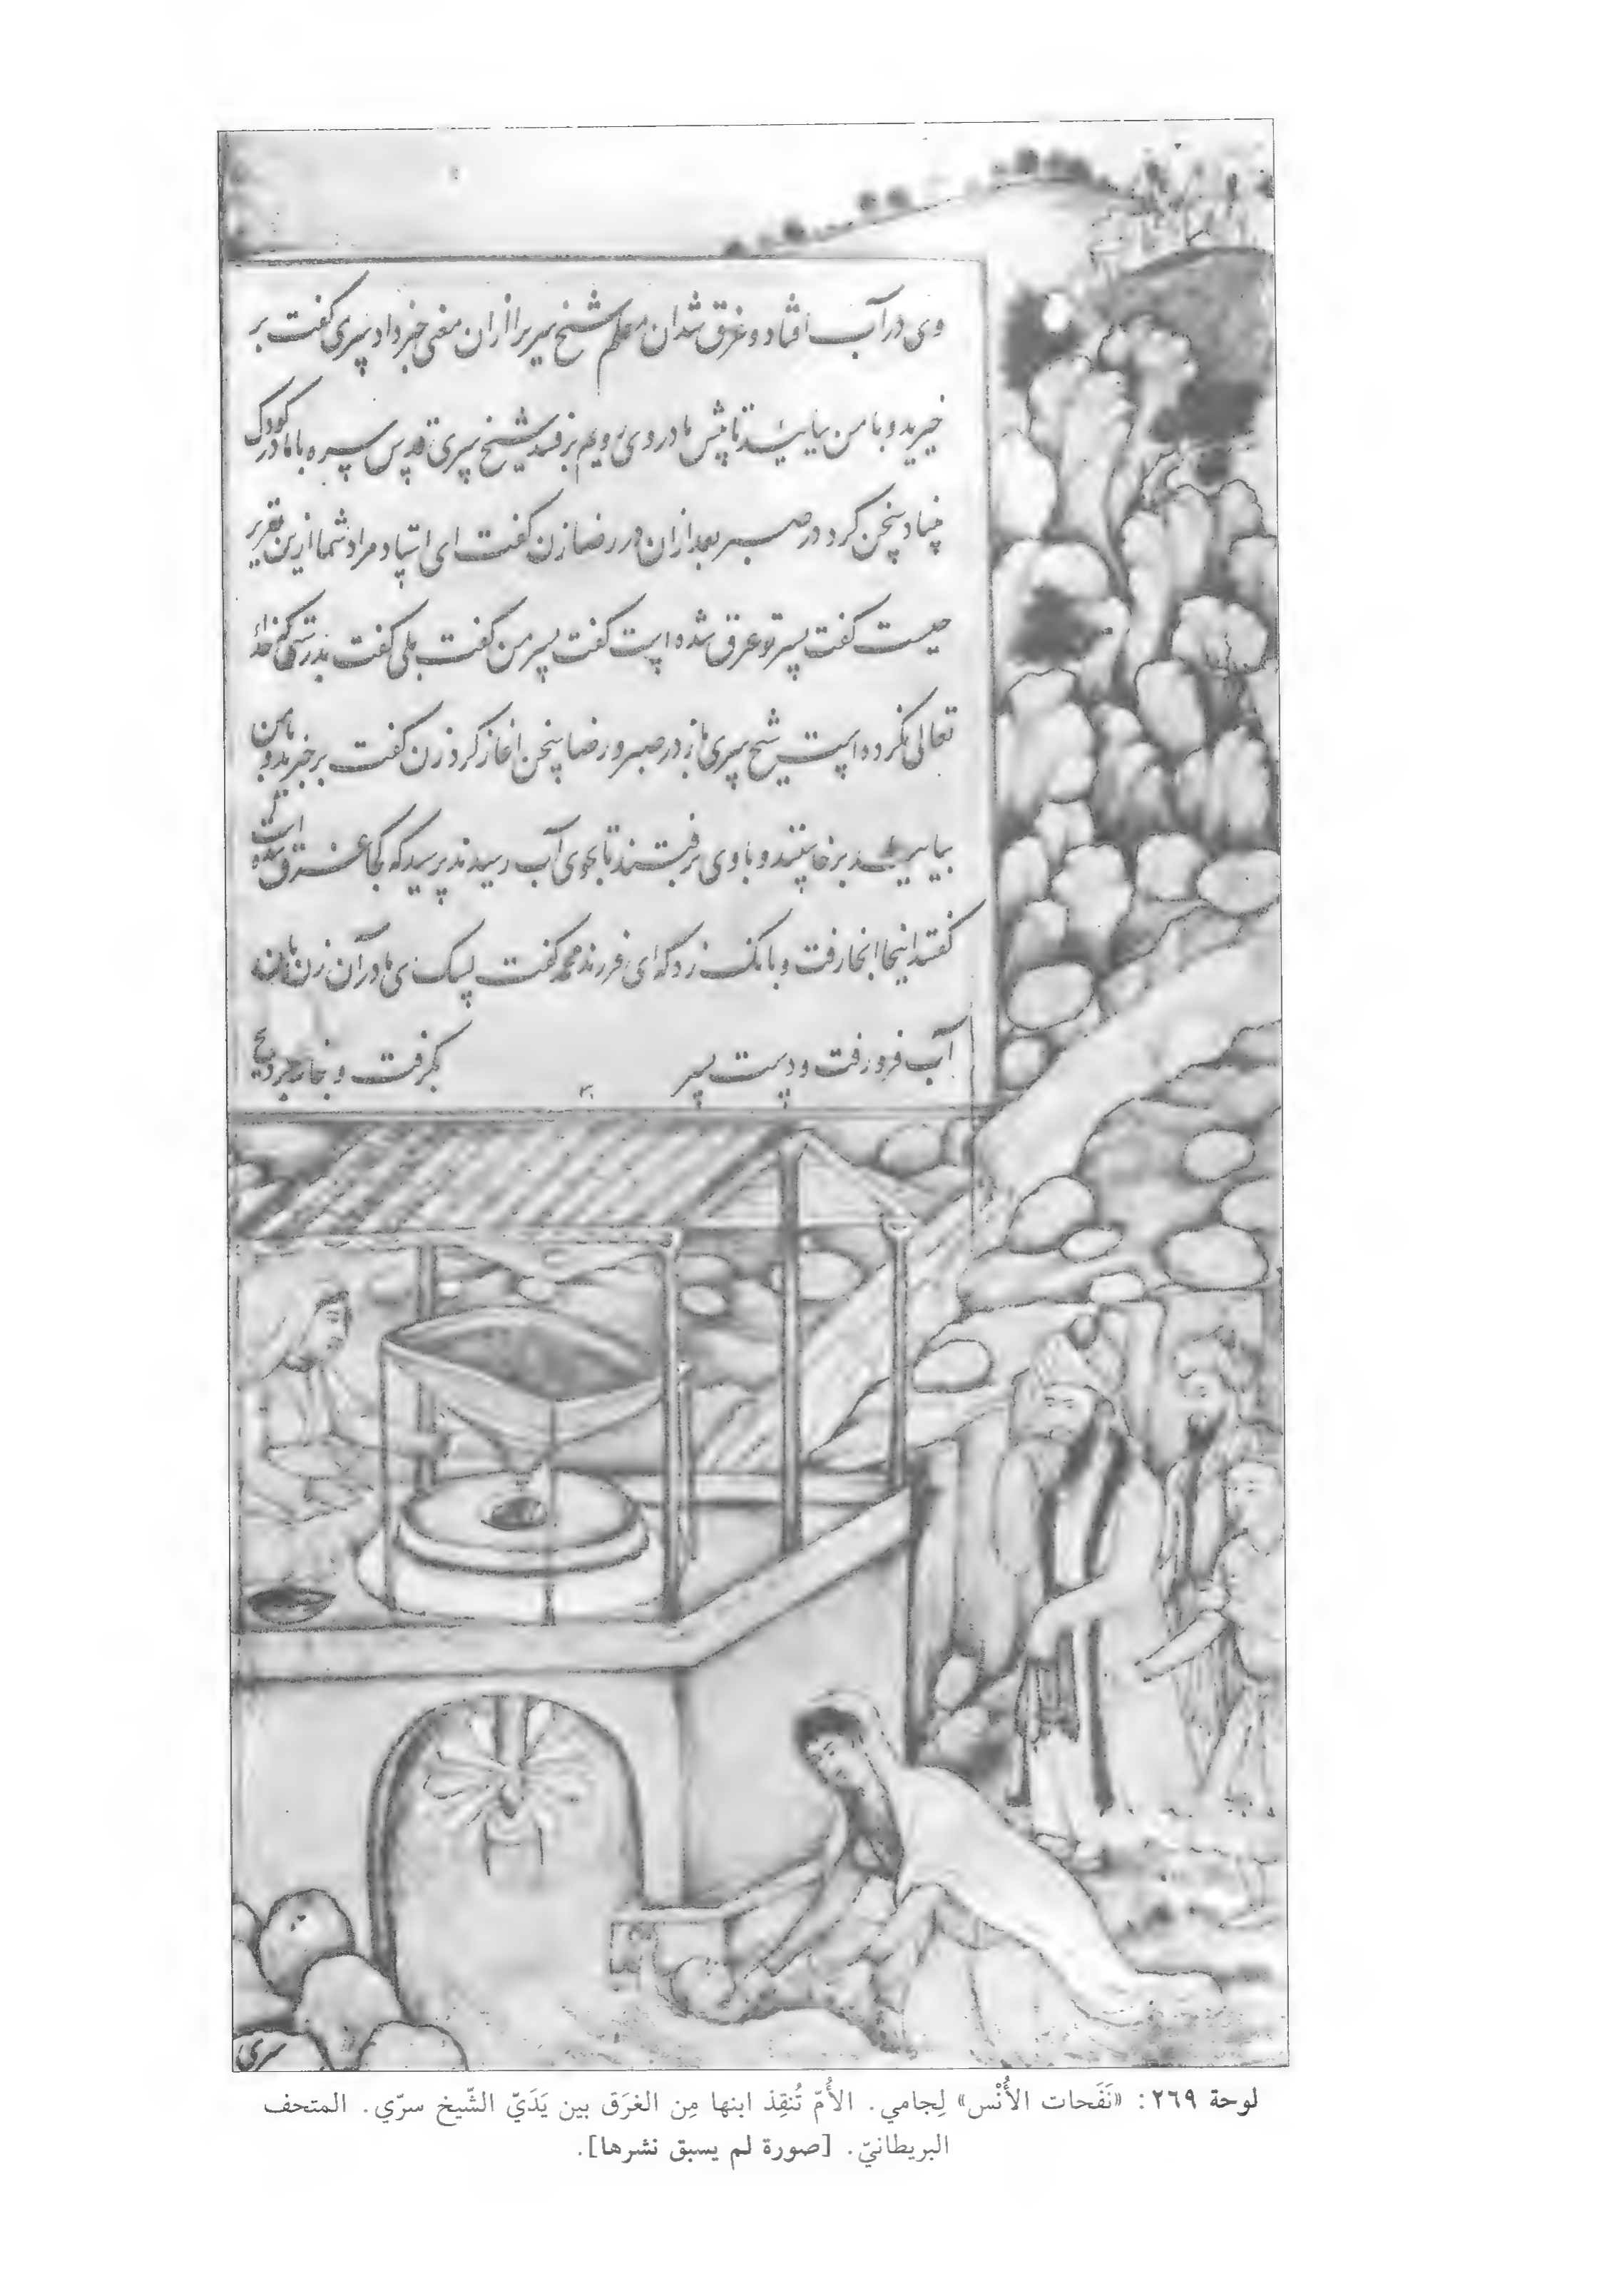 وی در آب افتاد و غرق شد ان معلم شیخ سری را ازان معنی خبر داد سری گفت بر
خیرید و با من بیایید تا پیش مادر وی رویم برفتند شیخ سری قدس سره با مادر کودک
بنیاد سخن کرد در صبر بعد ازان در رضا زن گفت ای استاد مراد شما ازین تقریر
چیست گفت پسر تو غرق شده است گفت پسر من گفت بلی گفت بدرستی که خدای
تعالی نکرده است شیخ سری باز در صبر و رضا سخن اغاز کرد زن گفت برخیزید و با من
بیایید برخاستند و با وی برفتند تا بجوی آب رسیدند پرسید که کجا غرق شده است
گفتند اینجا انجا رفت و بانک زد که ای فرزند محمد گفت لبیک ای مادر آن زن بان
آب فرو رفت و دست پسر بگرفت و بخانه برد شیخ
سری
لوحة ٢٦٩: «نَفَحات الأُنْس» لِجامي. الأُمّ تُنقِذ ابنها مِن الغرَق بين يَدَيّ الشّيخ سرّي. المتحف
البريطانيّ. [صورة لم يسبق نشرها].